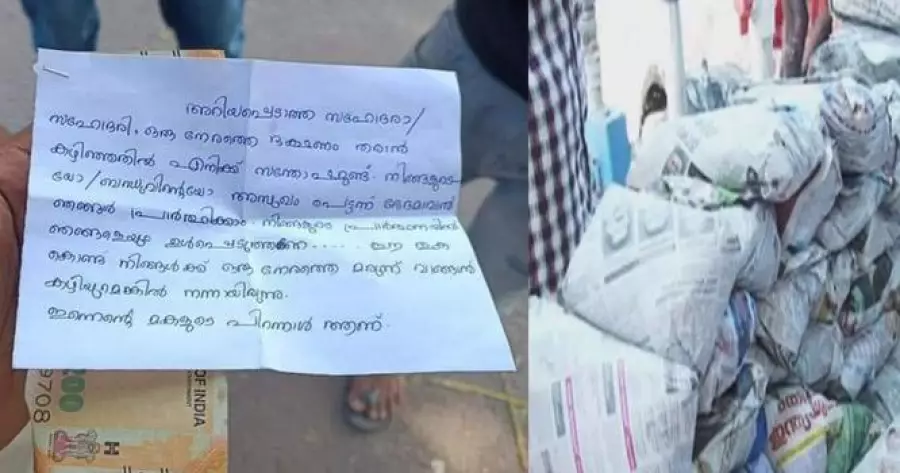 അറിയപ്പെടാത്ത സഹോദരാ/
സഹോദരി, ഒരു നേരത്തെ ഭക്ഷണം തരാൻ
കഴിഞ്ഞതിൽ എനിക്ക് സന്തോഷമുണ്ട്. നിങ്ങളുടെ
യോ/ബന്ധുവിന്റെയോ അസുഖം പെട്ടന്ന് ഭേദമാവാൻ
ഞങ്ങൾ പ്രാർത്ഥിക്കാം. നിങ്ങളുടെ പ്രാർത്ഥനയിൽ
ഞങ്ങളെയും ഉൾപ്പെടുത്തണേ..... ഈ തുക
കൊണ്ട് നിങ്ങൾക്ക് ഒരു നേരത്തെ മരുന്ന് വാങ്ങാൻ
കഴിയുമെങ്കിൽ നന്നായിരുന്നു.
ഇന്നെന്റെ മകളുടെ പിറന്നാൾ ആണ്.
OF INDIA
200
9708
H